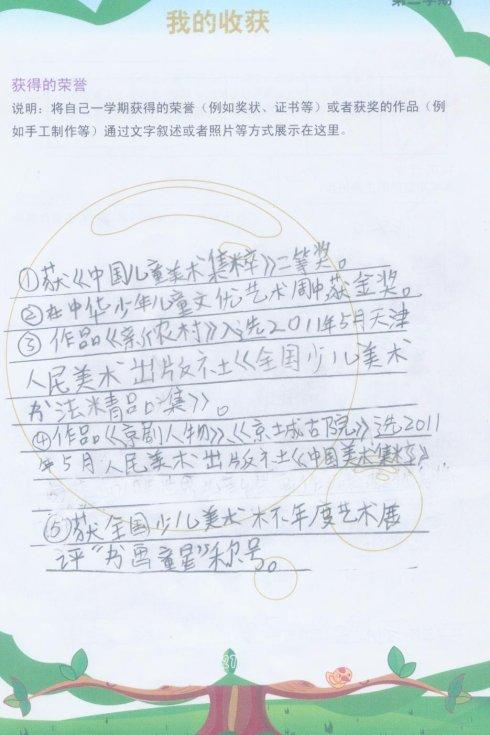 第二学期
我的收获
获得的荣誉
说明：将自己一学期获得的荣誉（例如奖状、证书等）或者获奖的作品（例
如手工制作等）通过文字叙述或者照片等方式展示在这里。
①获《中国儿童美术集粹》二等奖。
②在中华少年儿童文化艺术周中获金奖。
③作品《新农村》入选2011年5月天津
人民美术出版社《全国少儿美术
书法精品集》。
④作品《京剧人物》、《京城古院》选2011
年5月人民美术出版社《中国美术集粹》
⑤获全国少儿美术 年度艺术展
评“书画童星”称号。
27